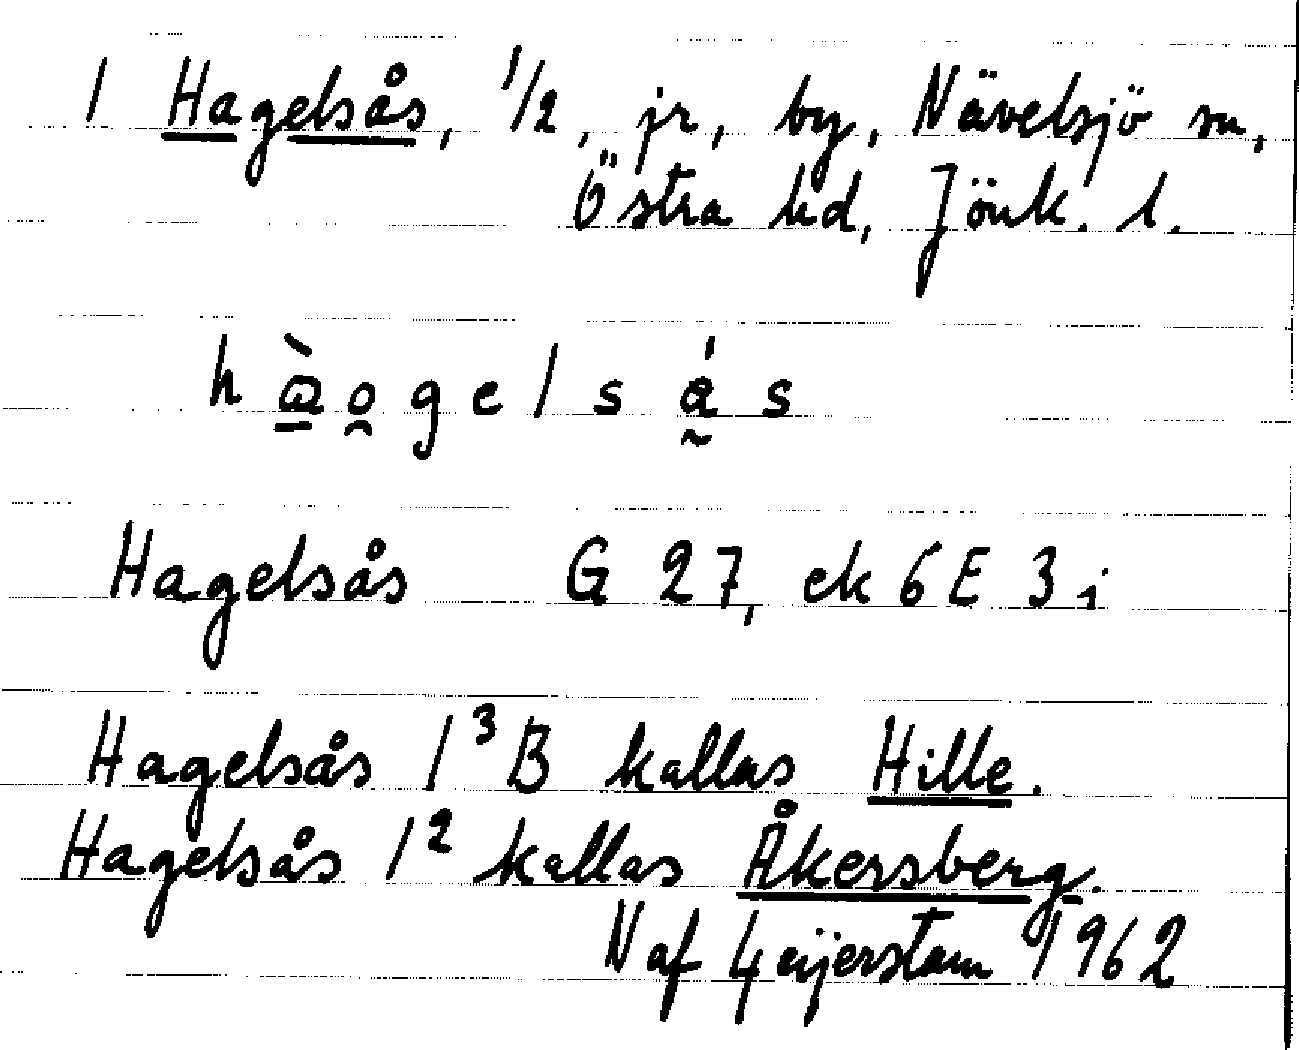 1 Hagelsås, 1/2, jr, by, Nävelsjö sn,
Östra hd, Jönk. l.
h à̱ o̯ g e l s á̰ s
Hagelsås G 27, ek 6E 3i
Hagelsås 1³B kallas Hille.
Hagelsås 1² kallas Åkersberg.
N af Geijerstam 1962